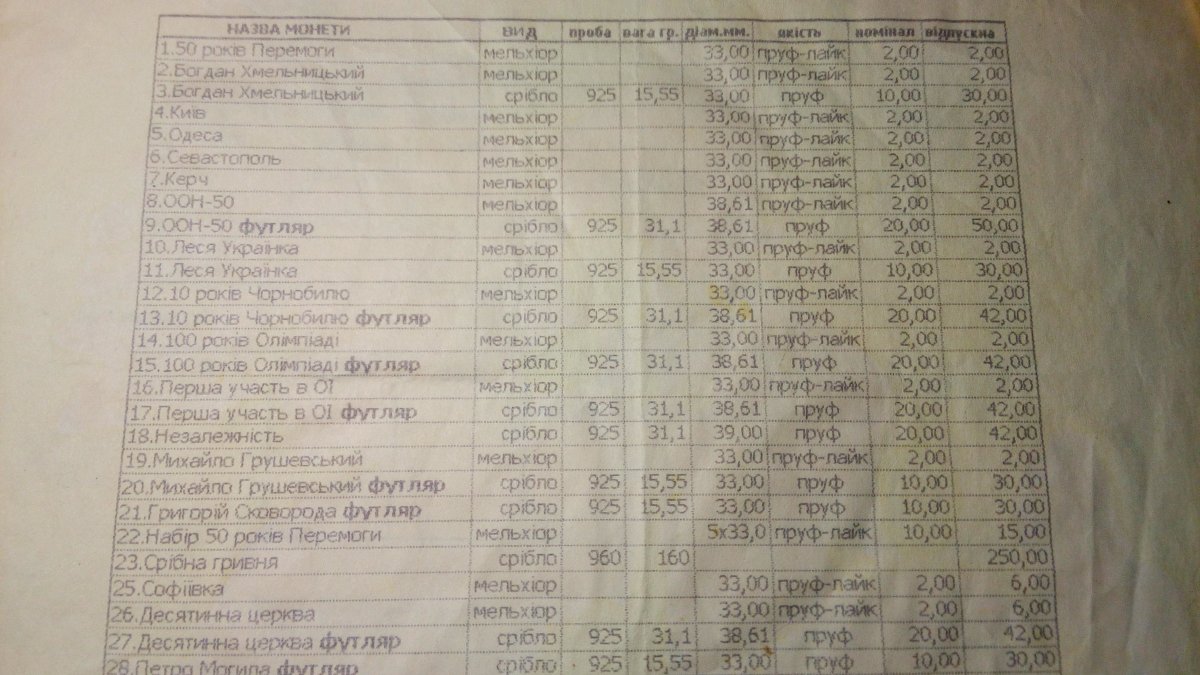 НАЗВА МОНЕТИ ВИД проба вага гр. діам.мм. якість номінал відпускна
1.50 років Перемоги мельхіор 33,00 пруф-лайк 2,00 2,00
2.Богдан Хмельницький мельхіор 33,00 пруф-лайк 2,00 2,00
3.Богдан Хмельницький срібло 925 15,55 33,00 пруф 10,00 30,00
4.Київ мельхіор 33,00 пруф-лайк 2,00 2,00
5.Одеса мельхіор 33,00 пруф-лайк 2,00 2,00
6.Севастополь мельхіор 33,00 пруф-лайк 2,00 2,00
7.Керч мельхіор 33,00 пруф-лайк 2,00 2,00
8.ООН-50 мельхіор 38,61 пруф-лайк 2,00 2,00
9.ООН-50 футляр срібло 925 31,1 38,61 пруф 20,00 50,00
10.Леся Українка мельхіор 33,00 пруф-лайк 2,00 2,00
11.Леся Українка срібло 925 15,55 33,00 пруф 10,00 30,00
12.10 років Чорнобилю мельхіор 33,00 пруф-лайк 2,00 2,00
13.10 років Чорнобилю футляр срібло 925 31,1 38,61 пруф 20,00 42,00
14.100 років Олімпіаді мельхіор 33,00 пруф-лайк 2,00 2,00
15.100 років Олімпіаді футляр срібло 925 31,1 38,61 пруф 20,00 42,00
16.Перша участь в ОІ мельхіор 33,00 пруф-лайк 2,00 2,00
17.Перша участь в ОІ футляр срібло 925 31,1 38,61 пруф 20,00 42,00
18.Незалежність срібло 925 31,1 39,00 пруф 20,00 42,00
19.Михайло Грушевський мельхіор 33,00 пруф-лайк 2,00 2,00
20.Михайло Грушевський футляр срібло 925 15,55 33,00 пруф 10,00 30,00
21.Григорій Сковорода футляр срібло 925 15,55 33,00 пруф 10,00 30,00
22.Набір 50 років Перемоги мельхіор 5х33,0 пруф-лайк 10,00 15,00
23.Срібна гривня срібло 960 160 250,00
25.Софіївка мельхіор 33,00 пруф-лайк 2,00 6,00
26.Десятинна церква мельхіор 33,00 пруф-лайк 2,00 6,00
27.Десятинна церква футляр срібло 925 31,1 38,61 пруф 20,00 42,00
28.Петро Могила футляр срібло 925 15,55 33,00 пруф 10,00 30,00